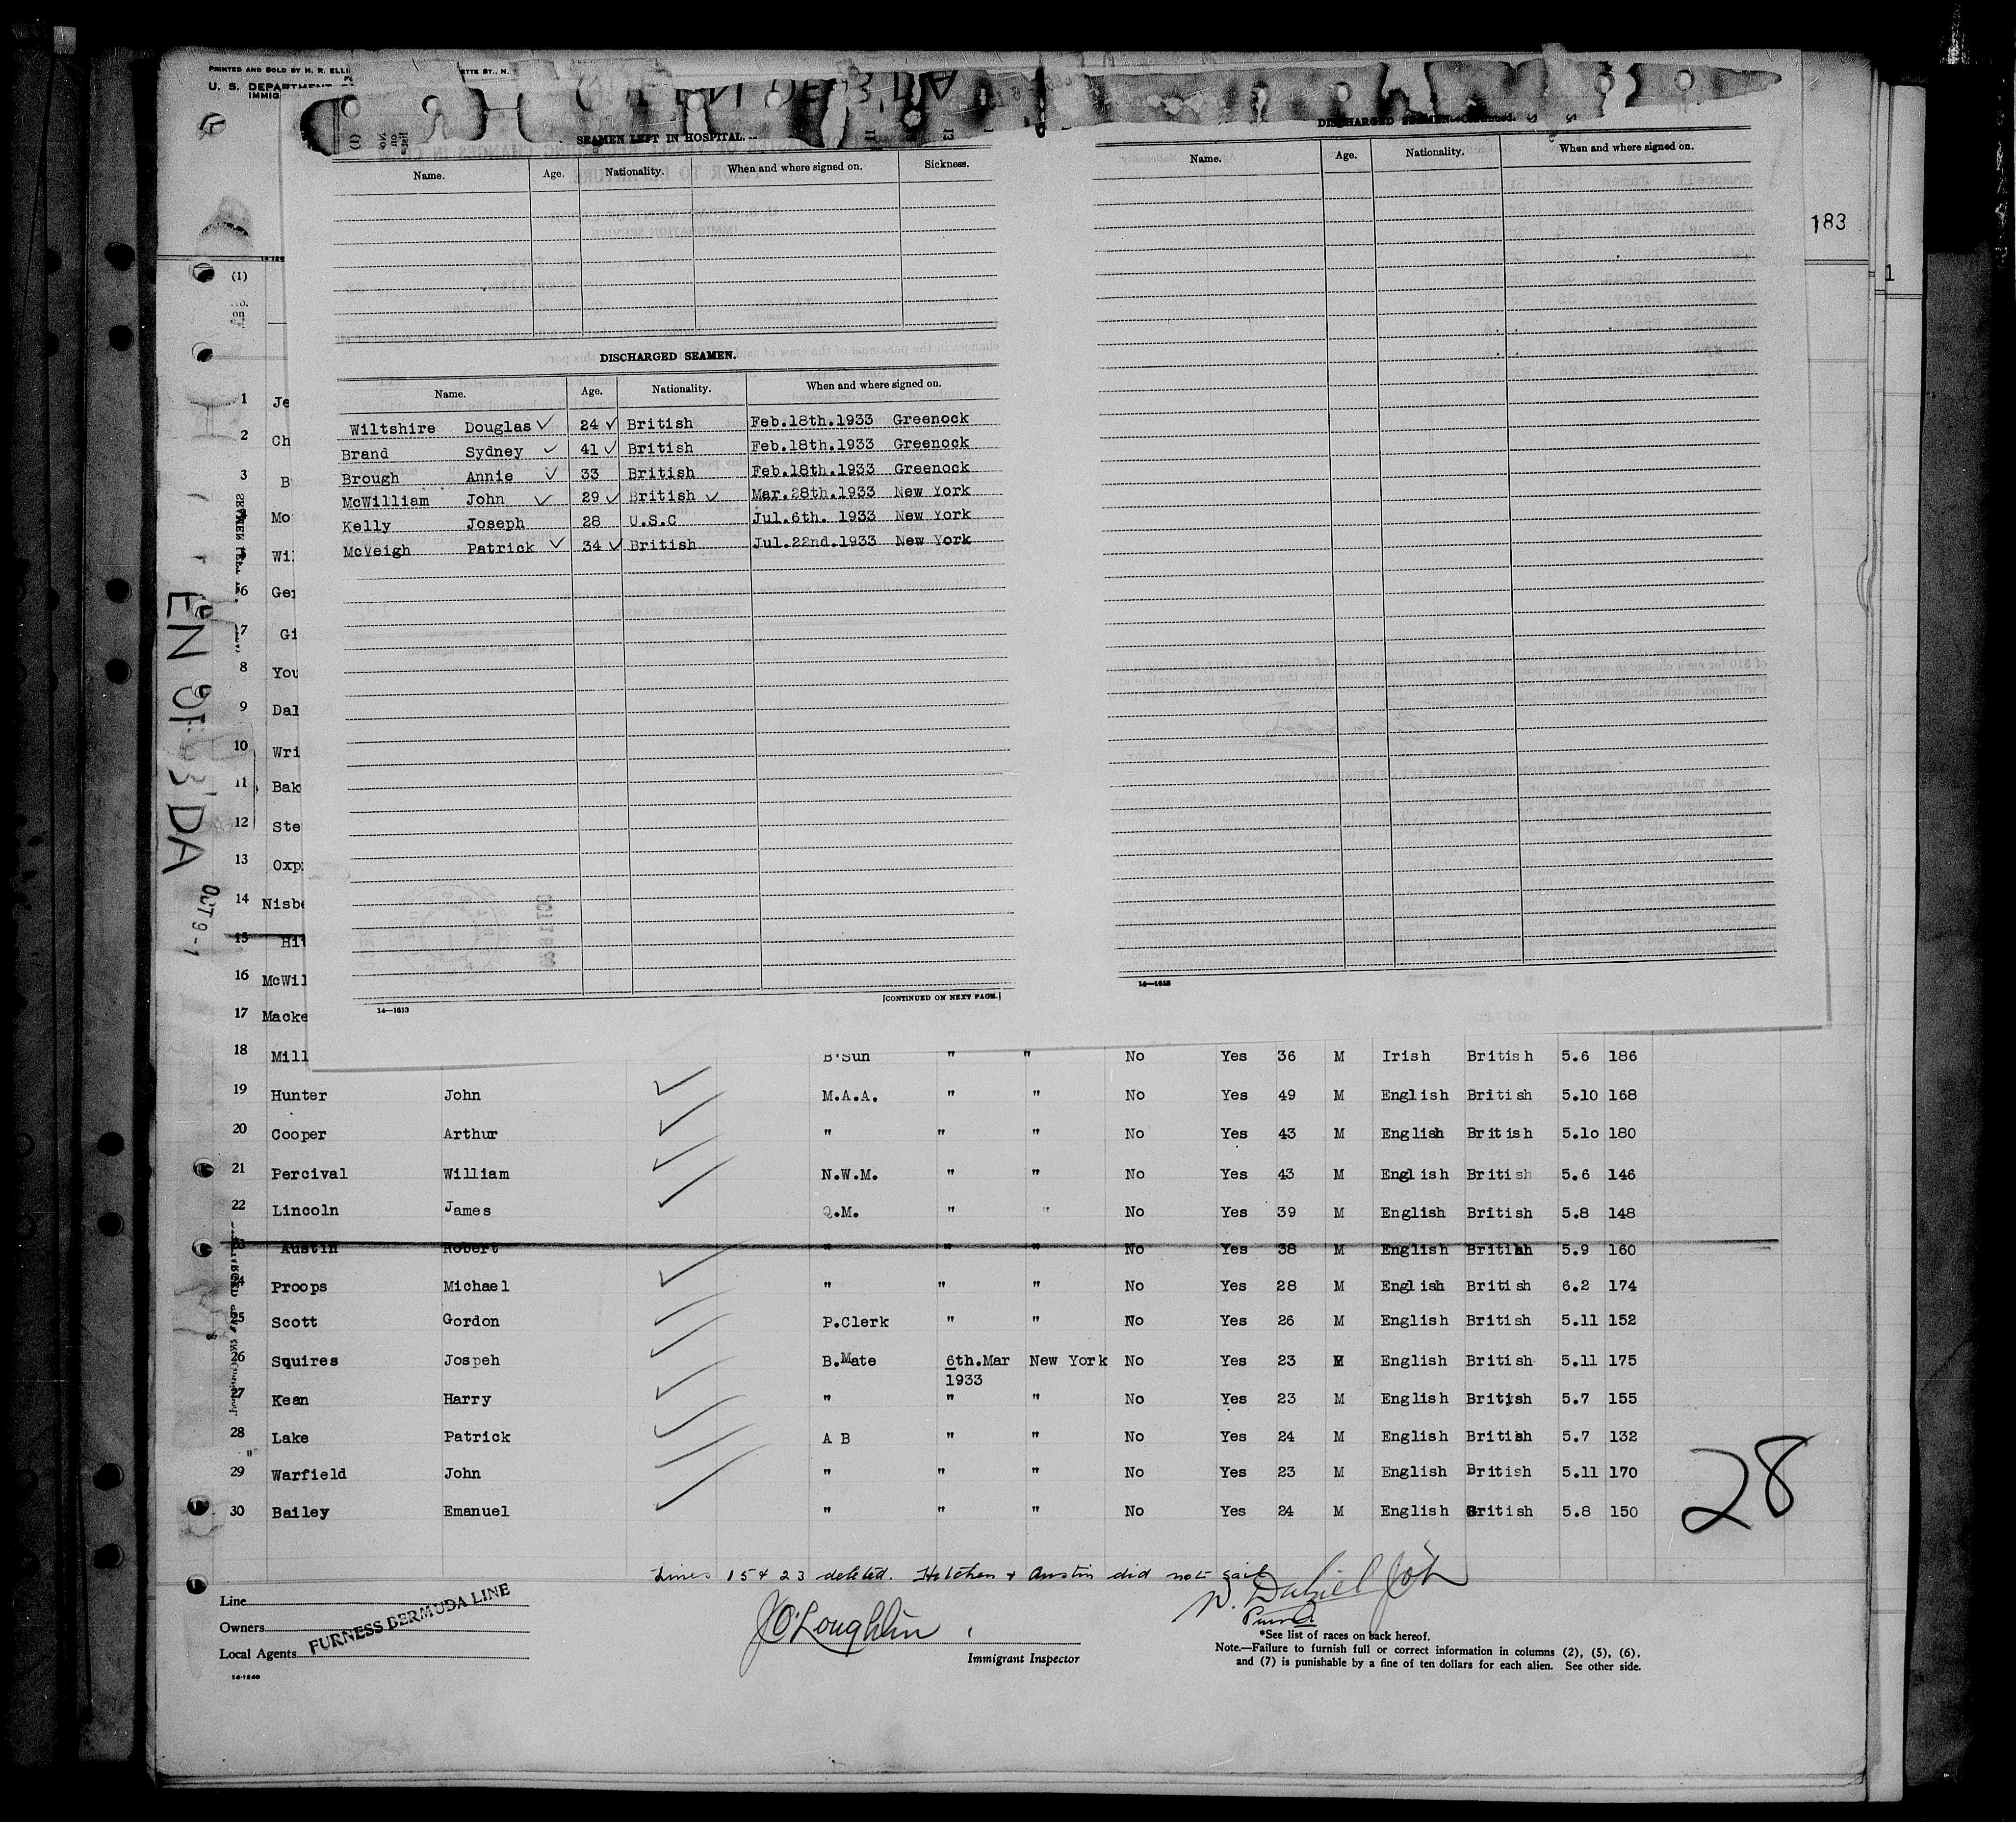 PRINTED AND SOLD BY H. R. ELLI
ETTE ST., N.
U. S. DEPARTMENT
IMMIG
SEAMEN LEFT IN HOSPITAL.
Name. Age. Nationality. When and where signed on. Sickness.
DISCHARGED SEAMEN.
Name. Age. Nationality. When and where signed on.
Wiltshire Douglas ✓ 24 ✓ British Feb.18th.1933 Greenock
Brand Sydney ✓ 41 ✓ British Feb.18th.1933 Greenock
Brough Annie ✓ 33 British Feb.18th.1933 Greenock
McWilliam John ✓ 29 ✓ British ✓ Mar.28th.1933 New York
Kelly Joseph 28 U.S.C Jul.6th. 1933 New York
McVeigh Patrick ✓ 34 ✓ British Jul.22nd.1933 New York
[CONTINUED ON NEXT PAGE.]
14—1613
DISCHARGED SEAMEN—Continued.
Name. Age. Nationality. When and where signed on.
14—1613
183
1
(1)
on
1 Je
2 Ch
3 B
Mo
Wi
6 Ger
7 Gi
8 You
9 Dal
10 Wri
11 Bak
12 Ste
13 Oxp
14 Nisbe
15 Hit
16 McWil
17 Macke
OCT 9-1
18 Mill B'Sun " " No Yes 36 M Irish British 5.6 186
19 Hunter John M.A.A. " " No Yes 49 M English British 5.10 168
20 Cooper Arthur " " " No Yes 43 M English British 5.10 180
21 Percival William N.W.M. " " No Yes 43 M English British 5.6 146
22 Lincoln James Q.M. " " No Yes 39 M English British 5.8 148
23 Austin Robert " " " No Yes 38 M English British 5.9 160
24 Proops Michael " " " No Yes 28 M English British 6.2 174
25 Scott Gordon P.Clerk " " No Yes 26 M English British 5.11 152
26 Squires Jospeh B.Mate 6th.Mar New York No Yes 23 M English British 5.11 175
1933
27 Kean Harry " " " No Yes 23 M English British 5.7 155
28 Lake Patrick A B " " No Yes 24 M English British 5.7 132
29 Warfield John " " " No Yes 23 M English British 5.11 170
30 Bailey Emanuel " " " No Yes 24 M English British 5.8 150
28
Lines 15 & 23 deleted. Hitchen & Austin did not sail
Line
Owners
Local Agents
FURNESS BERMUDA LINE
14-1240
J O'Loughlin
Immigrant Inspector
*See list of races on back hereof.
Note.—Failure to furnish full or correct information in columns (2), (5), (6),
and (7) is punishable by a fine of ten dollars for each alien. See other side.